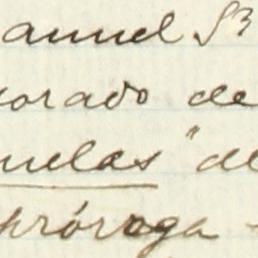 anuel S
orado de
uelas" de
próroga -